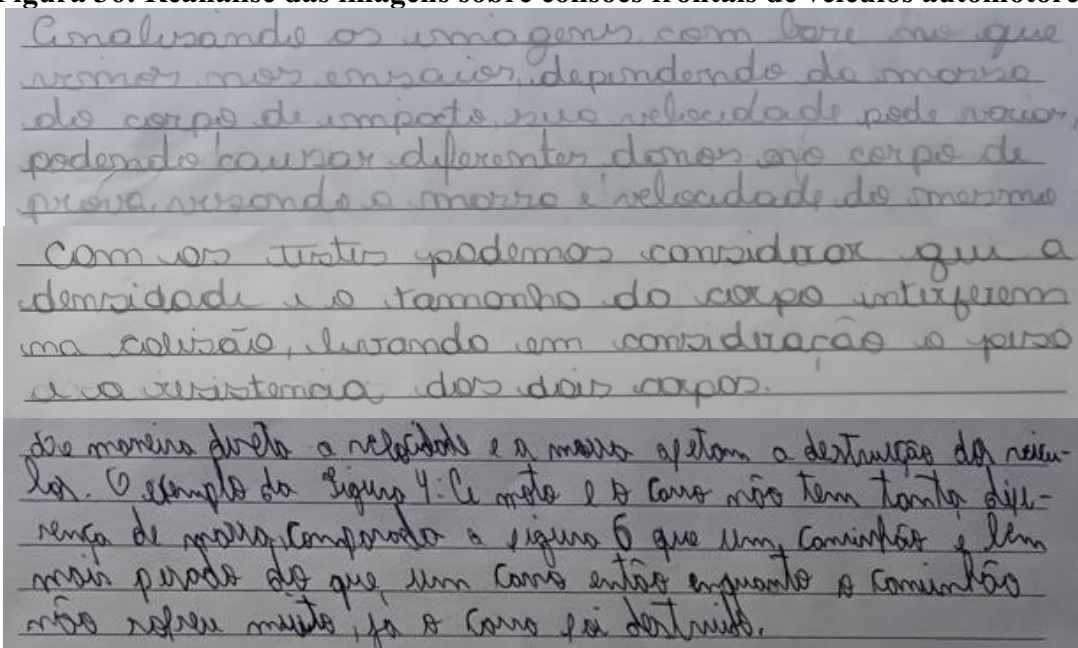 Figura 30: Reanálise das imagens sobre colisões frontais de veículos automotore
Analisando as imagens com base no que
vimos nos ensaios, dependendo da massa
do corpo de impacto, sua velocidade pode variar,
podendo causar diferentes danos ao corpo de
prova, visando a massa e velocidade do mesmo
Com os testes podemos considerar que a
densidade e o tamanho do corpo interferem
na colisão, levando em consideração o peso
e a resistencia dos dois corpos.
De maneira direta a velocidade e a massa afetam a destruição dos veicu-
los. O exemplo da figura 4: A moto e o carro não tem tanta dife-
rença de massa, comparado a figura 6 que um caminhão é bem
mais pesado do que um carro então enquanto o caminhão
não sofreu muito, já o carro foi destruido.